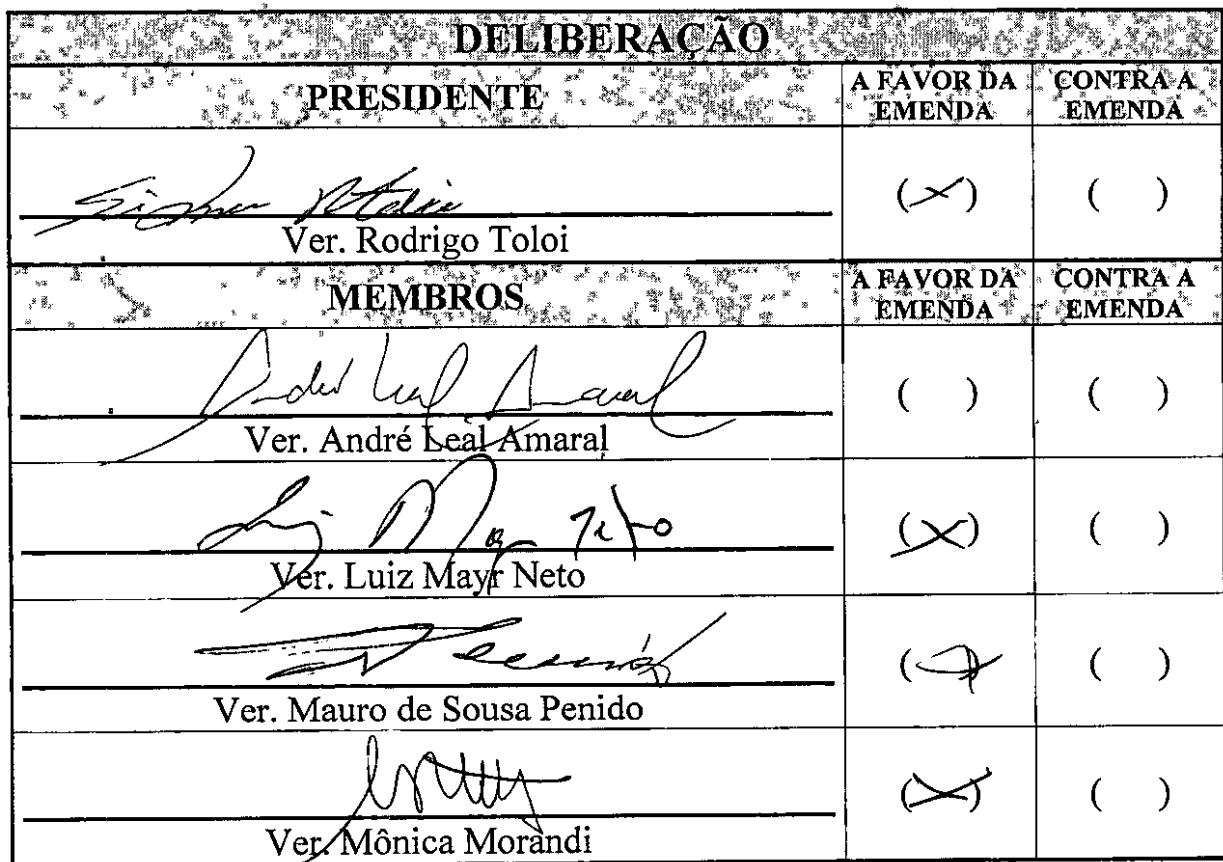 DELIBERAÇÃO
PRESIDENTE A FAVOR DA EMENDA CONTRA A EMENDA
(X) ( )
Ver. Rodrigo Toloi
MEMBROS A FAVOR DA EMENDA CONTRA A EMENDA
André Leal Amaral ( ) ( )
Ver. André Leal Amaral
Luiz Mayr Neto (X) ( )
Ver. Luiz Mayr Neto
(X) ( )
Ver. Mauro de Sousa Penido
(X) ( )
Ver. Mônica Morandi